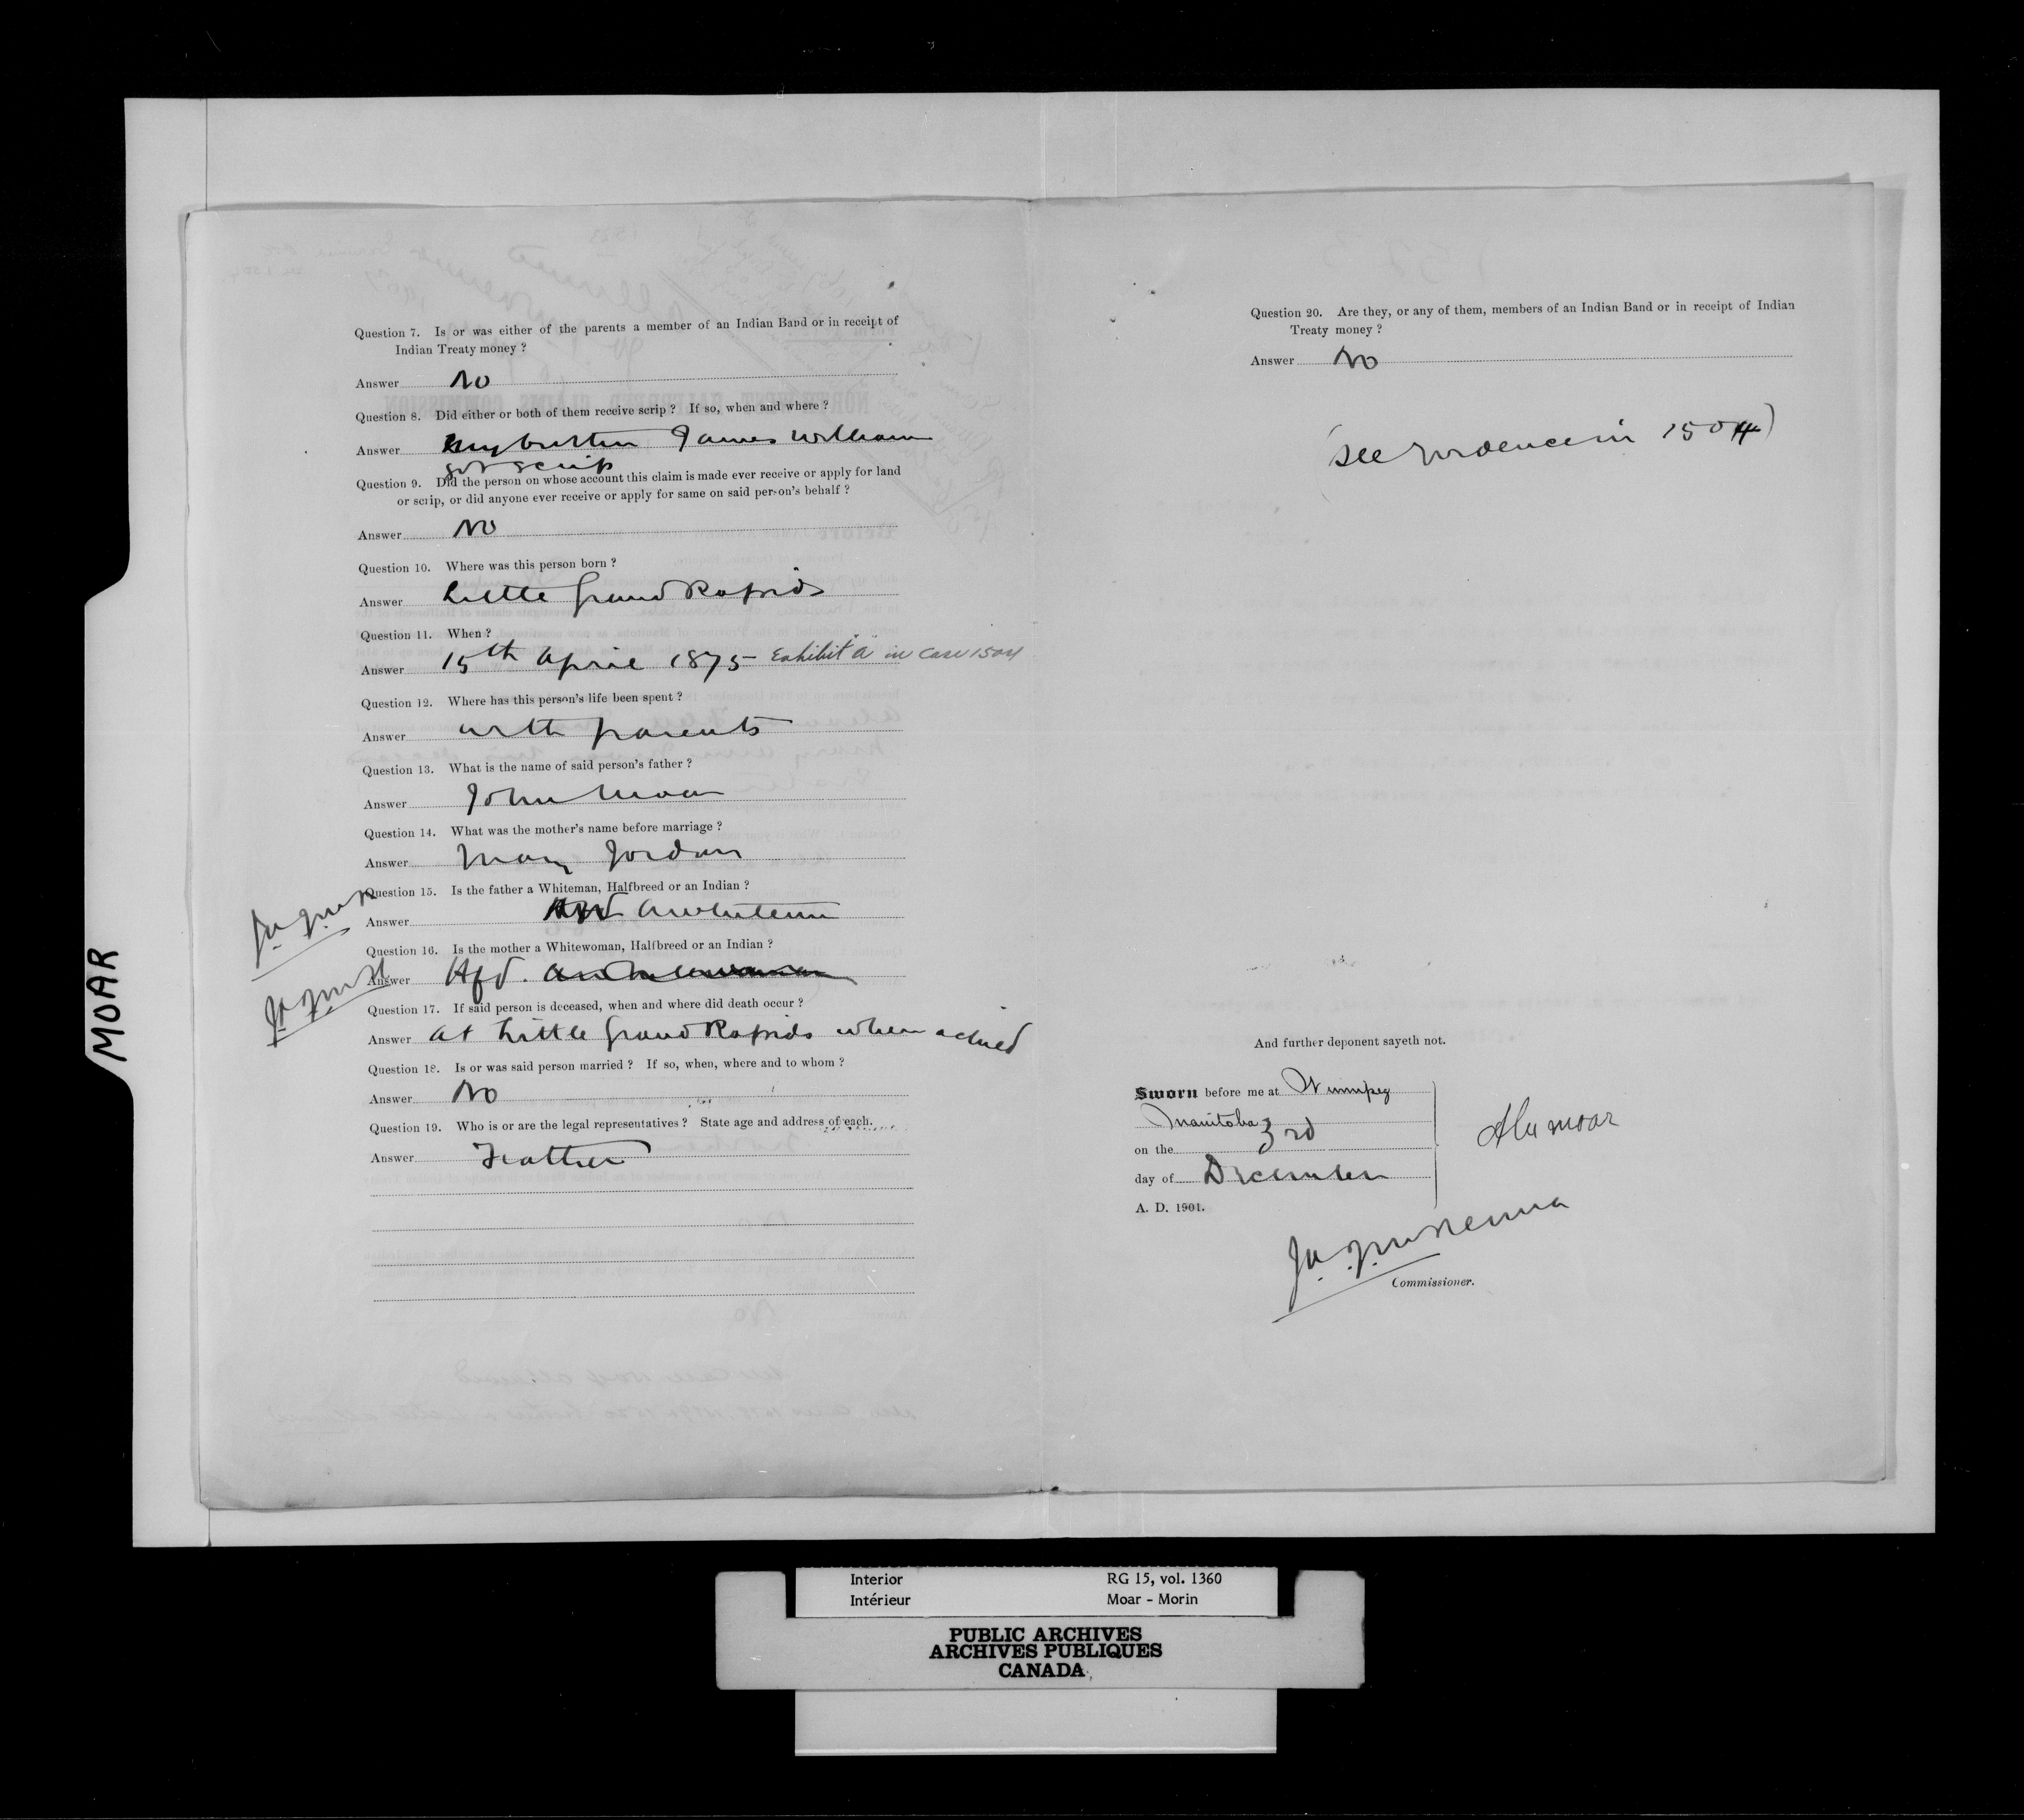 Question 7. Is or was either of the parents a member of an Indian Band or in receipt of
Indian Treaty money ?
Answer No
Question 8. Did either or both of them receive scrip ? If so, when and where ?
Answer my brother James William
got scrip
Question 9. Did the person on whose account this claim is made ever receive or apply for land
or scrip, or did anyone ever receive or apply for same on said person's behalf ?
Answer No
Question 10. Where was this person born ?
Answer Little Grand Rapids
Question 11. When ?
Answer 15th April 1875 Exhibit "a" in Case 1504
Question 12. Where has this person's life been spent ?
Answer with parents
Question 13. What is the name of said person's father ?
Answer John Moar
Question 14. What was the mother's name before marriage ?
Answer Mary Jordan
Question 15. Is the father a Whiteman, Halfbreed or an Indian ?
Answer a whiteman
Question 16. Is the mother a Whitewoman, Halfbreed or an Indian ?
Answer Hfd.
Question 17. If said person is deceased, when and where did death occur ?
Answer at Little Grand Rapids when a child
Question 18. Is or was said person married ? If so, when, where and to whom ?
Answer No
Question 19. Who is or are the legal representatives ? State age and address of each.
Answer Father
MOAR
Question 20. Are they, or any of them, members of an Indian Band or in receipt of Indian
Treaty money ?
Answer No
(See Evidence in 1504)
And further deponent sayeth not.
Sworn before me at Winnipeg
Manitoba
on the 3rd
day of December
A. D. 1901.
Alex Moar
J.A.J. McKenna
Commissioner.
Interior RG 15, vol. 1360
Intérieur Moar - Morin
PUBLIC ARCHIVES
ARCHIVES PUBLIQUES
CANADA